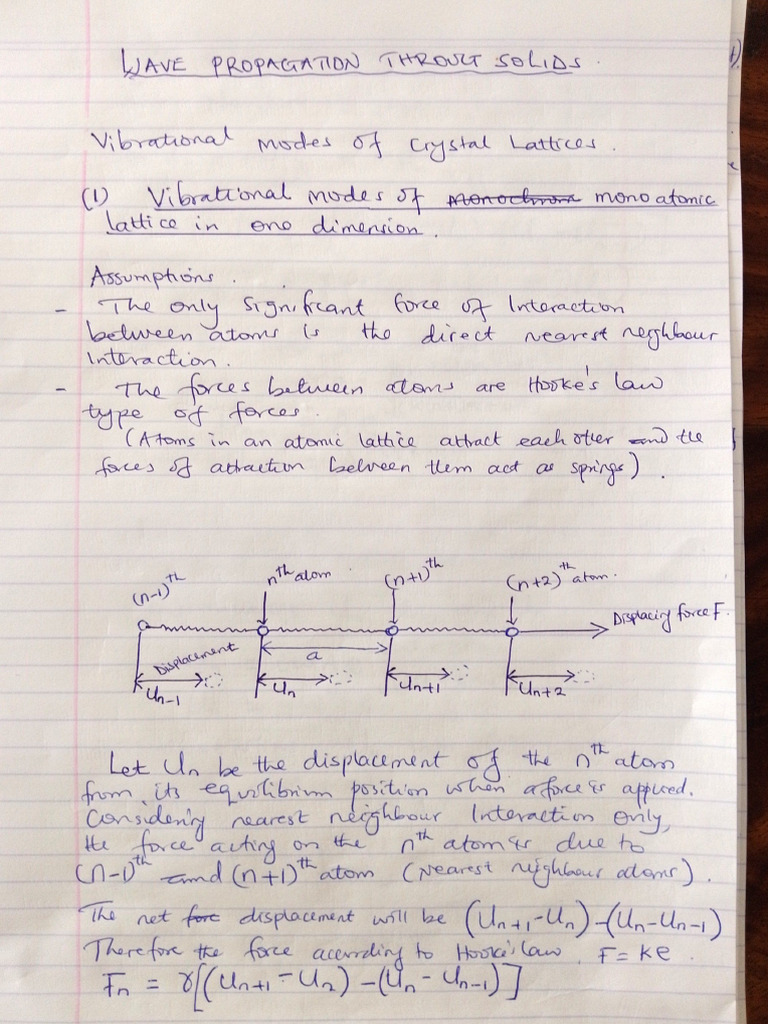 WAVE PROPAGATION THROUGT SOLIDS.
1)
Vibrational modes of Crystal Lattices.
(1) Vibrational modes of monochrom monoatomic
lattice in one dimension.
Assumptions.
- The only significant force of Interaction
between atoms is the direct nearest neighbour
Interaction.
- The forces between atoms are Hooke's law
type of forces.
(Atoms in an atomic lattice attract each other and the
forces of attraction between them act as springs).
(n-1)^th n^th atom. (n+1)^th (n+2)^th atom.
Displacing force F.
Displacement a
U_{n-1} U_n U_{n+1} U_{n+2}
Let U_n be the displacement of the n^th atom
from its equilibrium position when a force is applied.
Considering nearest neighbour Interaction only,
the force acting on the n^th atom is due to
(n-1)^th and (n+1)^th atom (Nearest neighbour atoms).
The net force displacement will be (U_{n+1}-U_n)-(U_n-U_{n-1})
Therefore the force according to Hooke's law, F = ke.
F_n = γ[(U_{n+1} - U_n) - (U_n - U_{n-1})]